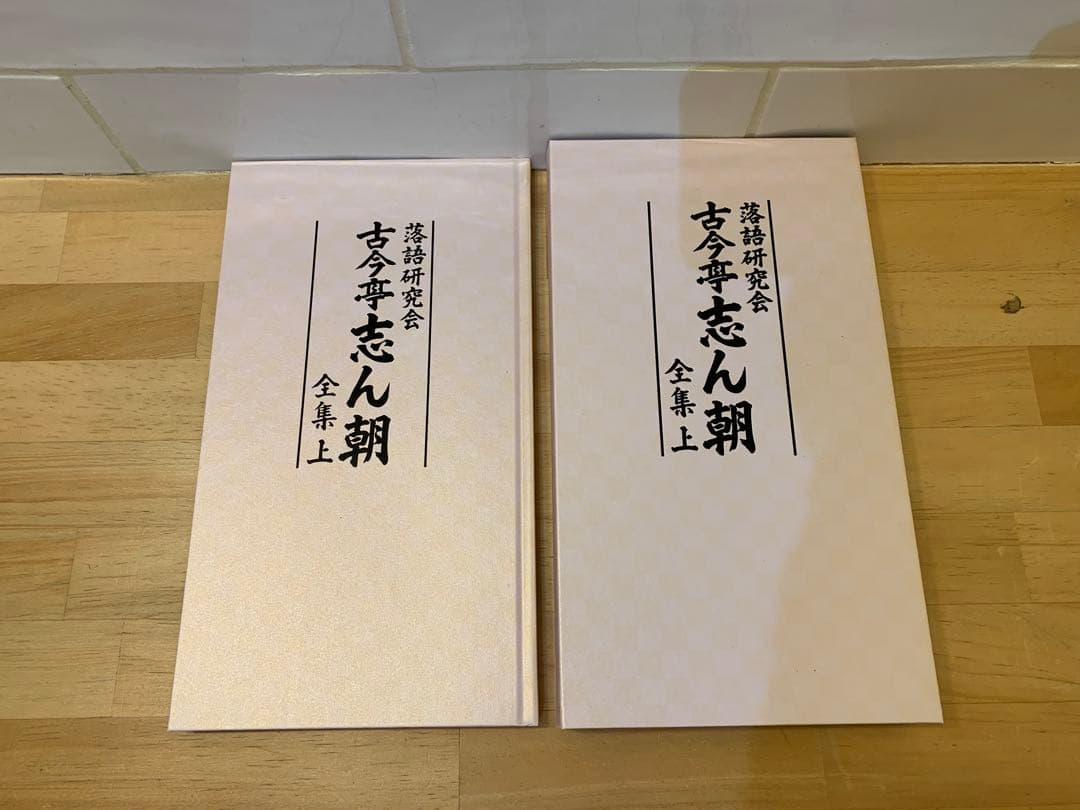 落語研究会
古今亭志ん朝
全集 上
落語研究会
古今亭志ん朝
全集 上